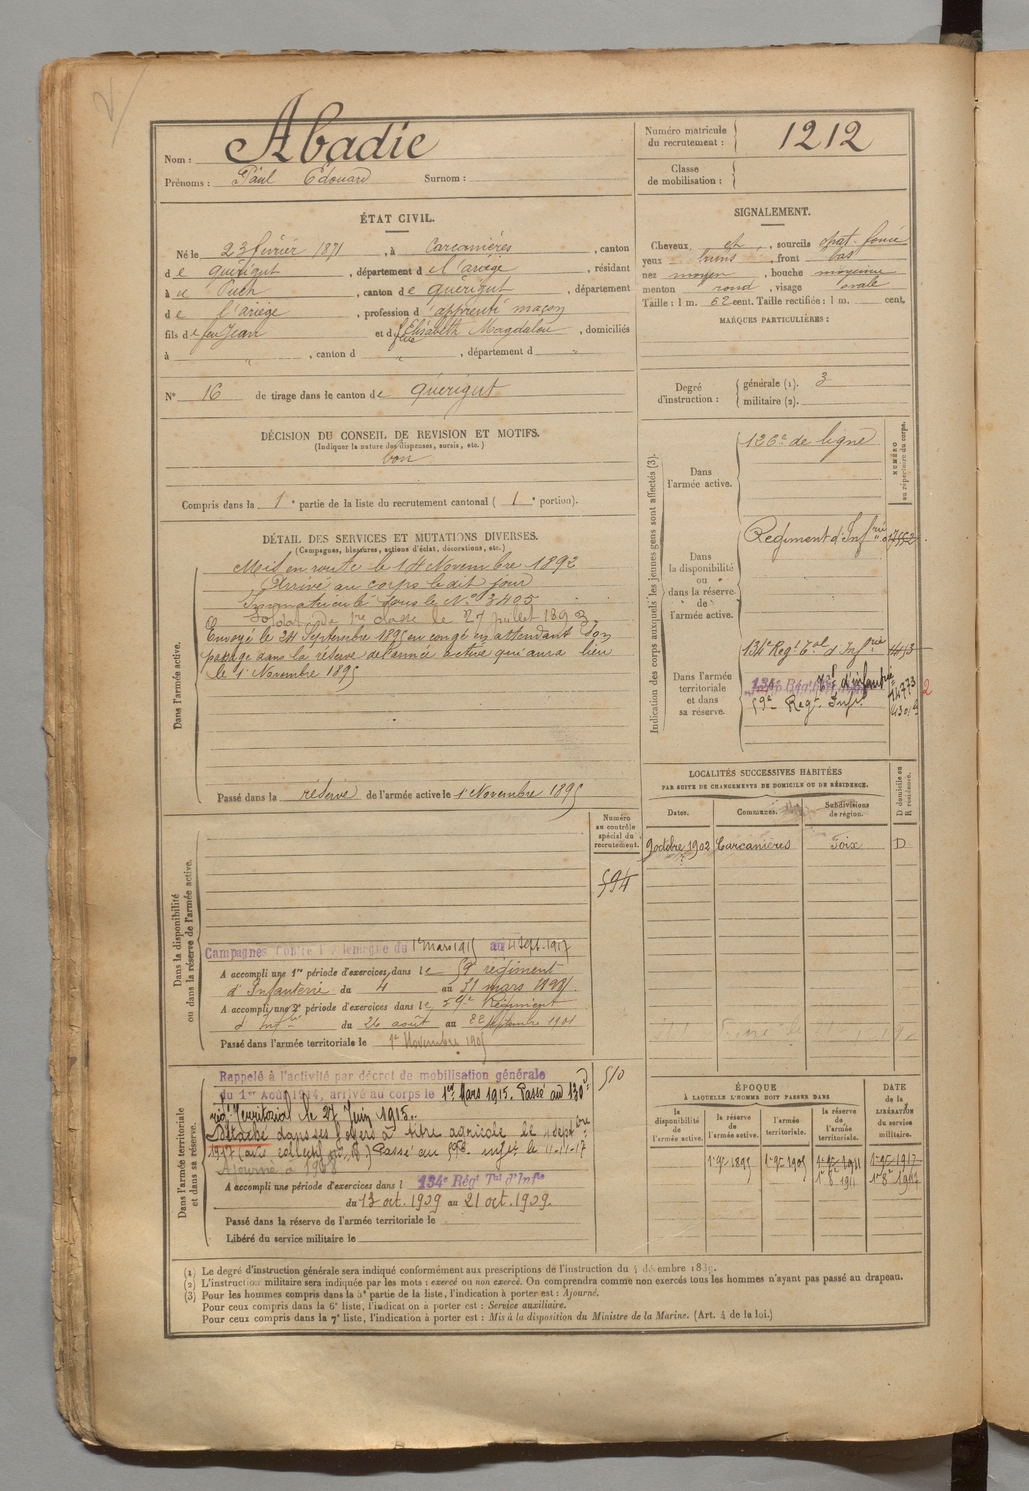 Nom : Abadie
Prénoms : Paul Edouard Surnom :
Numéro matricule du recrutement : 1212
Classe de mobilisation :
ÉTAT CIVIL.
Né le 23 février 1871, à Carcanières, canton
de Quérigut, département de l'ariège, résidant
à Le Puch, canton de Quérigut, département
de l'ariège, profession d'apprenti maçon
fils de feu Jean et de feue Elisabeth Magdalou, domiciliés
à " , canton d " , département d "
N° 16 de tirage dans le canton de Quérigut
SIGNALEMENT.
Cheveux et , sourcils chat. foncé
yeux bruns , front bas
nez moyen , bouche moyenne
menton rond , visage ovale
Taille : 1 m. 62 cent. Taille rectifiée : 1 m. cent.
MARQUES PARTICULIÈRES :
Degré d'instruction : générale (1). 3
militaire (2).
DÉCISION DU CONSEIL DE REVISION ET MOTIFS.
(Indiquer la nature des dispenses, sursis, etc.)
bon
Compris dans la 1e partie de la liste du recrutement cantonal ( 1e portion).
DÉTAIL DES SERVICES ET MUTATIONS DIVERSES.
(Campagnes, blessures, actions d'éclat, décorations, etc.)
Dans l'armée active.
Mis en route le 14 Novembre 1892
Arrivé au corps le dit jour
Immatriculé sous le N° 3405
Soldat de 1re classe le 27 juillet 1893
Envoyé le 24 Septembre 1895 en congé en attendant son
passage dans la réserve de l'armée active qui aura lieu
le 1 Novembre 1895
Passé dans la réserve de l'armée active le 1 Novembre 1895
Indication des corps auxquels les jeunes gens sont affectés (3).
NUMÉRO au répertoire du corps.
Dans l'armée active.
126e de ligne
Dans la disponibilité ou dans la réserve de l'armée active.
Régiment d'Infrie
Dans l'armée territoriale et dans sa réserve.
134e Regt Tal d'Infrie
134e Rég Tal d'infanterie
59e Regt Infie
LOCALITÉS SUCCESSIVES HABITÉES
PAR SUITE DE CHANGEMENTS DE DOMICILE OU DE RÉSIDENCE.
Dates. Communes. Subdivisions de région. D domicile ou R résidence.
9 octobre 1902 Carcanières Foix D
Numéro au contrôle spécial du recrutement.
594
Dans la disponibilité ou dans la réserve de l'armée active.
Campagnes Contre l'Allemagne du 1er mars 1915 au 4 Sept. 1917
A accompli une 1re période d'exercices dans le 59e régiment
d'Infanterie du 4 au 31 mars
A accompli une 2e période d'exercices dans le 59e Régiment
d'Infie du 26 août au 22 septembre 1901
Passé dans l'armée territoriale le 1er Novembre 1905
510
Dans l'armée territoriale et dans sa réserve.
Rappelé à l'activité par décret de mobilisation générale
du 1er Août 1914, arrivé au corps le 1er Mars 1915. Passé au 130e
régt Territorial le 27 Juin 1915.
Détaché dans ses foyers à titre agricole le 4 septbre
1917 Passé au 59e infie le 11-11-17
A accompli une période d'exercices dans l 134e Régt Tal d'Infie
du 13 oct. 1909 au 21 oct. 1909.
Passé dans la réserve de l'armée territoriale le
Libéré du service militaire le
ÉPOQUE
À LAQUELLE L'HOMME DOIT PASSER DANS
la disponibilité de l'armée active. la réserve de l'armée active. l'armée territoriale. la réserve de l'armée territoriale.
DATE de la LIBÉRATION du service militaire.
1er 9bre 1895 1er 9bre 1905 1er 9bre 1911 1er 9bre 1917
1er 8bre 1911 1er 8bre 1917
(1) Le degré d'instruction générale sera indiqué conformément aux prescriptions de l'instruction du 4 décembre 1889.
(2) L'instruction militaire sera indiquée par les mots : exercé ou non exercé. On comprendra comme non exercés tous les hommes n'ayant pas passé au drapeau.
(3) Pour les hommes compris dans la 5e partie de la liste, l'indication à porter est : Ajourné.
Pour ceux compris dans la 6e liste, l'indication à porter est : Service auxiliaire.
Pour ceux compris dans la 7e liste, l'indication à porter est : Mis à la disposition du Ministre de la Marine. (Art. 4 de la loi.)